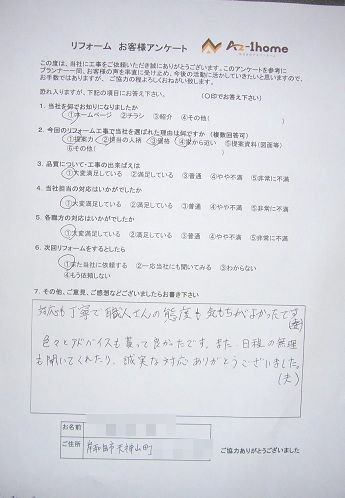 リフォーム お客様アンケート
Az-Ihome
この度は、当社に工事をご依頼いただき誠にありがとうございます。このアンケートを参考に
プランナー一同、お客様の声を率直に受け止め、今後の活動に活かしていきたいと思いますので、
お手数ではありますが、ご協力の程よろしくおねがい致します。
恐れ入りますが、下記の項目にお答え下さい。 (○印でお答え下さい)
1. 当社を何でお知りになりましたか
①ホームページ ②チラシ ③紹介 ④その他( )
2. 今回のリフォーム工事で当社を選ばれた理由は何ですか (複数回答可)
①提案力 ②担当の人柄 ③価格 ④家から近い ⑤提案資料(図面等)
⑥その他( )
3. 品質について・工事の出来ばえは
①大変満足している ②満足している ③普通 ④やや不満 ⑤非常に不満
4. 当社担当の対応はいかがでしたか
①大変満足している ②満足している ③普通 ④やや不満 ⑤非常に不満
5. 各職方の対応はいかがでしたか
①大変満足している ②満足している ③普通 ④やや不満 ⑤非常に不満
6. 次回リフォームをするとしたら
①また当社に依頼する ②一応当社にも聞いてみる ③わからない
④もう依頼しない
7. その他、ご意見、ご感想などございましたらお書き下さい
対応も丁寧で職人さんの態度も気もちがよかったです
(妻)
色々とアドバイスも貰って良かったです。また、日程の無理
も聞いてくれたり、誠実な対応ありがとうございました。
(夫)
お名前
ご住所 岸和田市天神山町
ご協力ありがとうございました